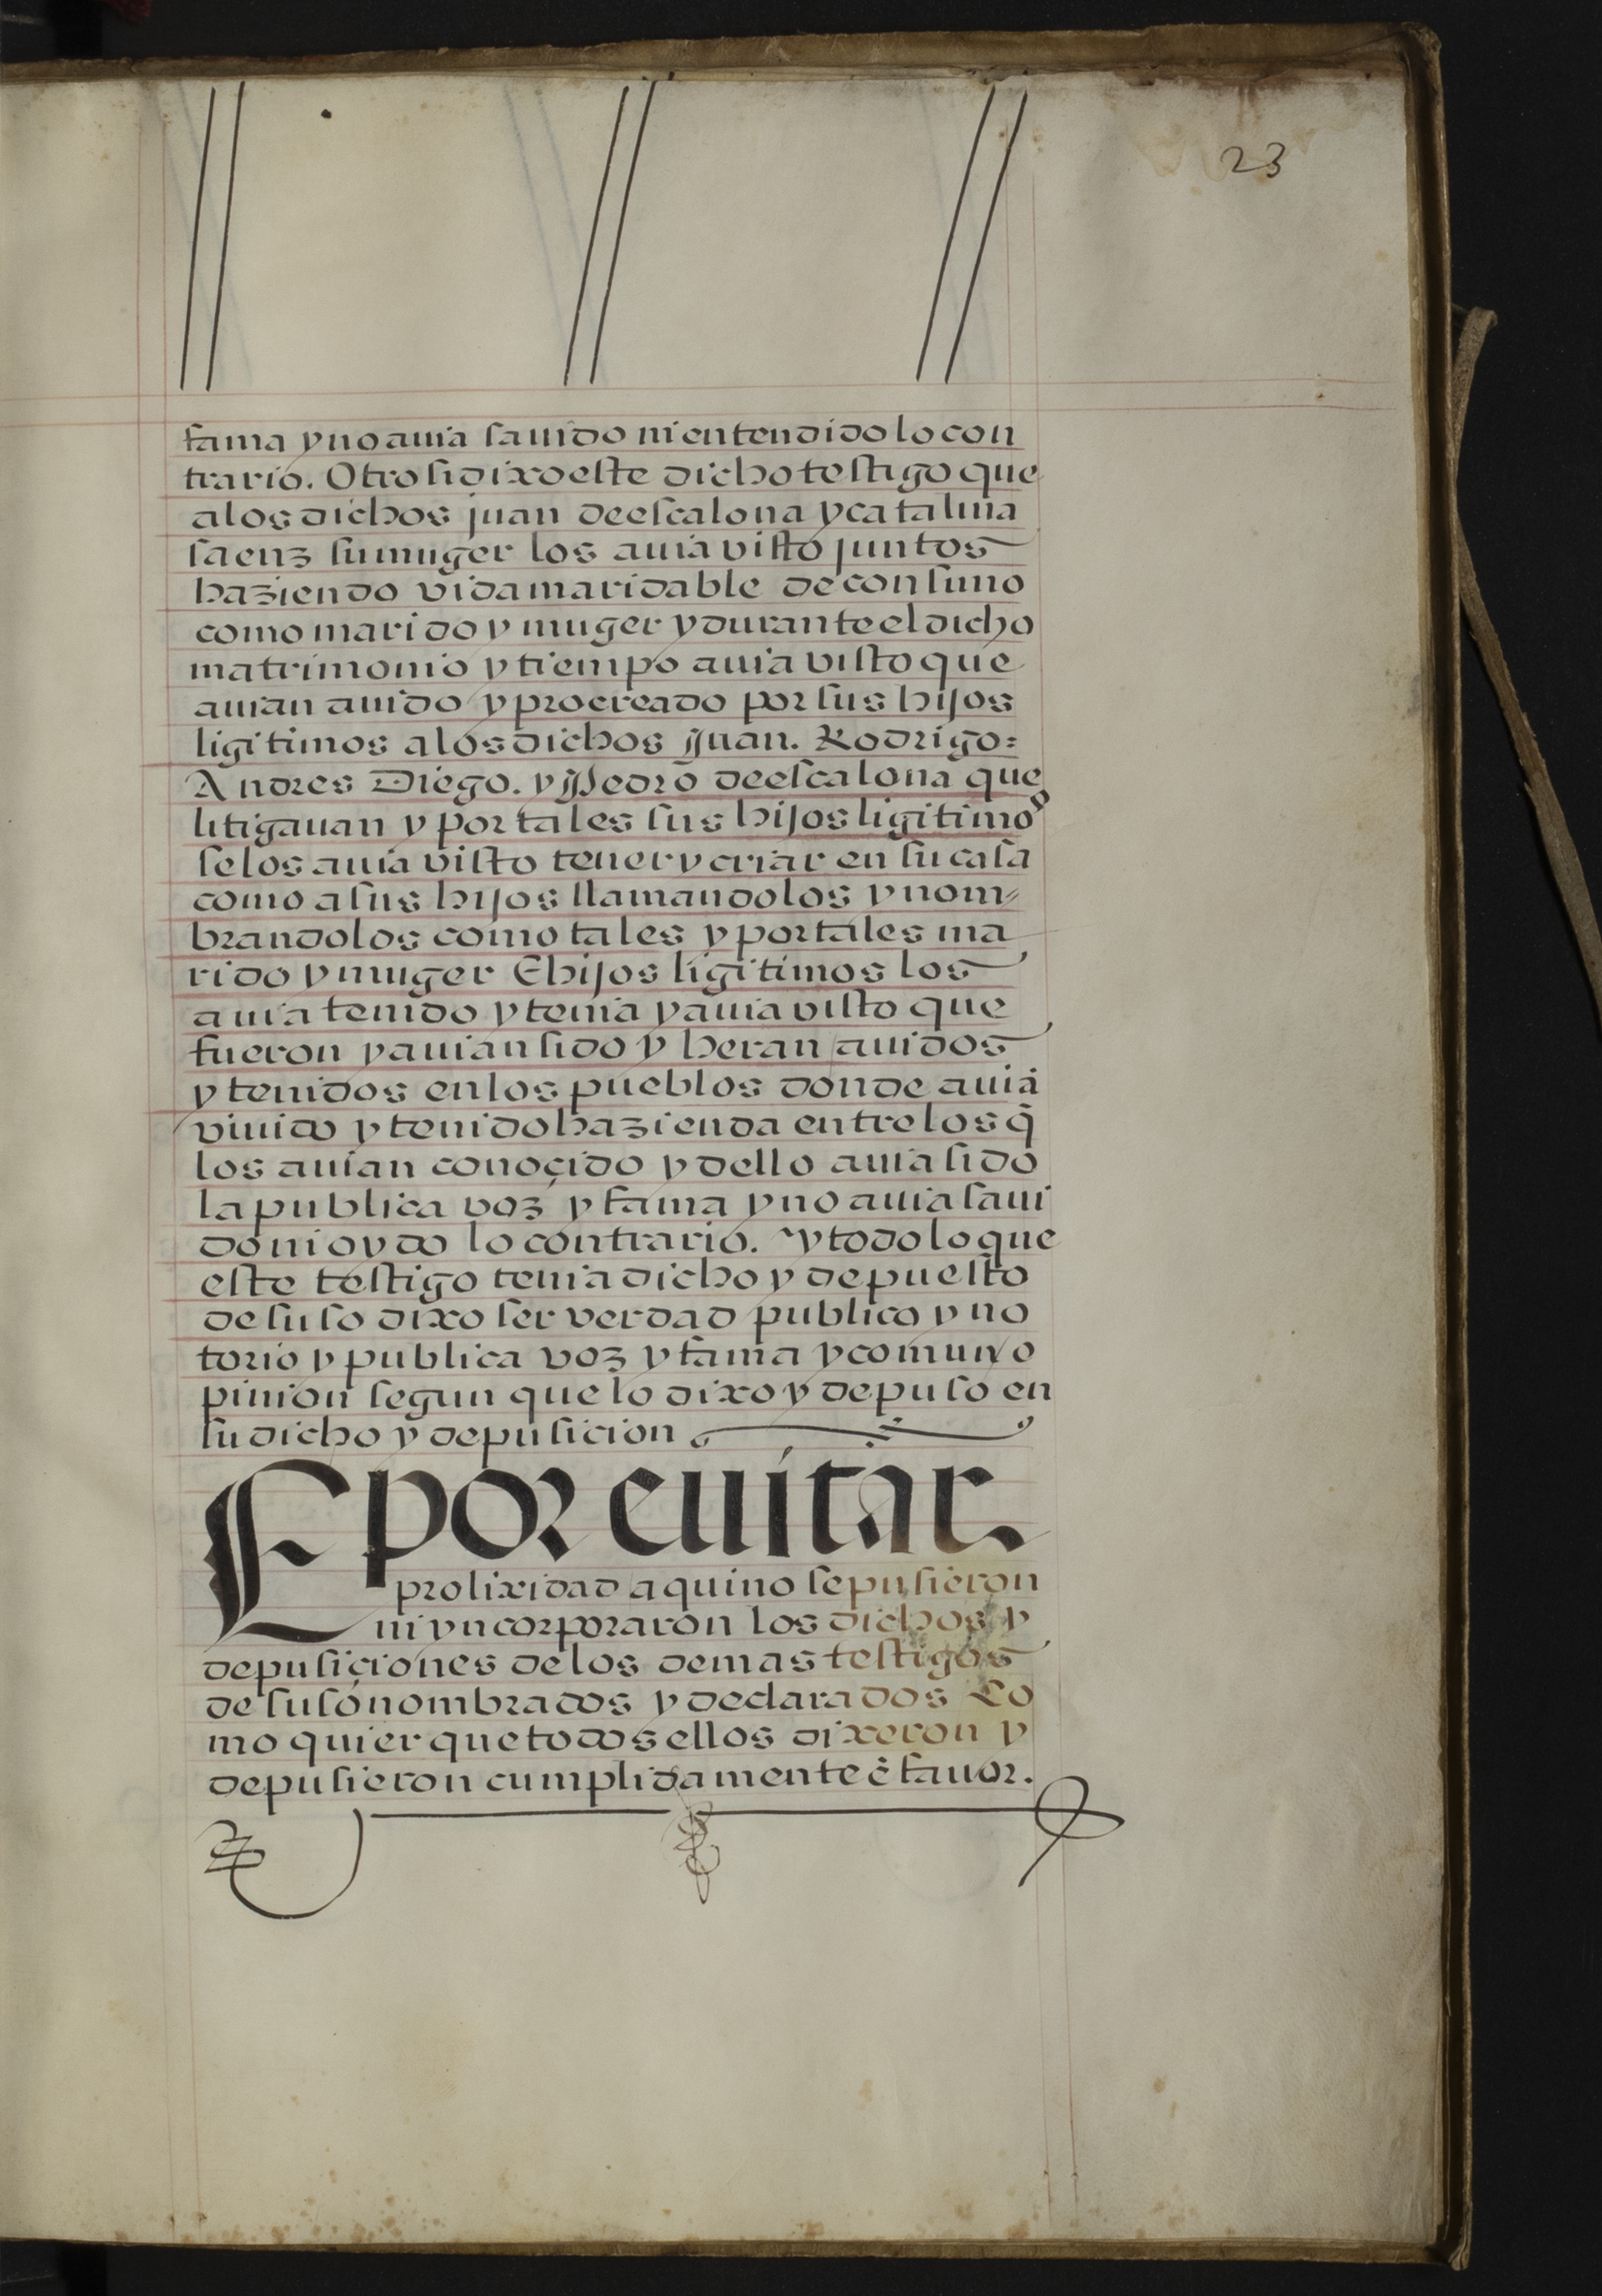 23
fama y no auia sauido ni entendido lo con
trario. Otro si dixo este dicho testigo que
a los dichos juan de escalona y catalina
saenz su muger los auia visto juntos
haziendo vida maridable de consuno
como marido y muger y durante el dicho
matrimonio y tiempo auia visto que
auian auido y procreado por sus hijos
ligitimos a los dichos juan. Rodrigo:
Andres Diego. y Pedro de escalona que
litigauan y por tales sus hijos ligitimos
se los auia visto tener y criar en su casa
como a sus hijos llamandolos y nom-
brandolos como tales y por tales ma
rido y muger E hijos ligitimos los
auia tenido y tenia y auia visto que
fueron y auian sido y heran auidos
y tenidos en los pueblos donde auiā
viuido y tenido hazienda entre los q̄
los auian conoçido y dello auia sido
la publica voz y fama y no auia saui
do ni oydo lo contrario. y todo lo que
este testigo tenia dicho y depuesto
de suso dixo ser verdad publico y no
torio y publica voz y fama y comun o
pinion segun que lo dixo y depuso en
su dicho y depusicion
E por euitar
prolixidad aqui no se pusieron
ni yncorporaron los dichos y
depusiçiones de los demas testigos
de suso nombrados y declarados Co
mo quier que todos ellos dixeron y
depusieron cumplidamente ē fauor.